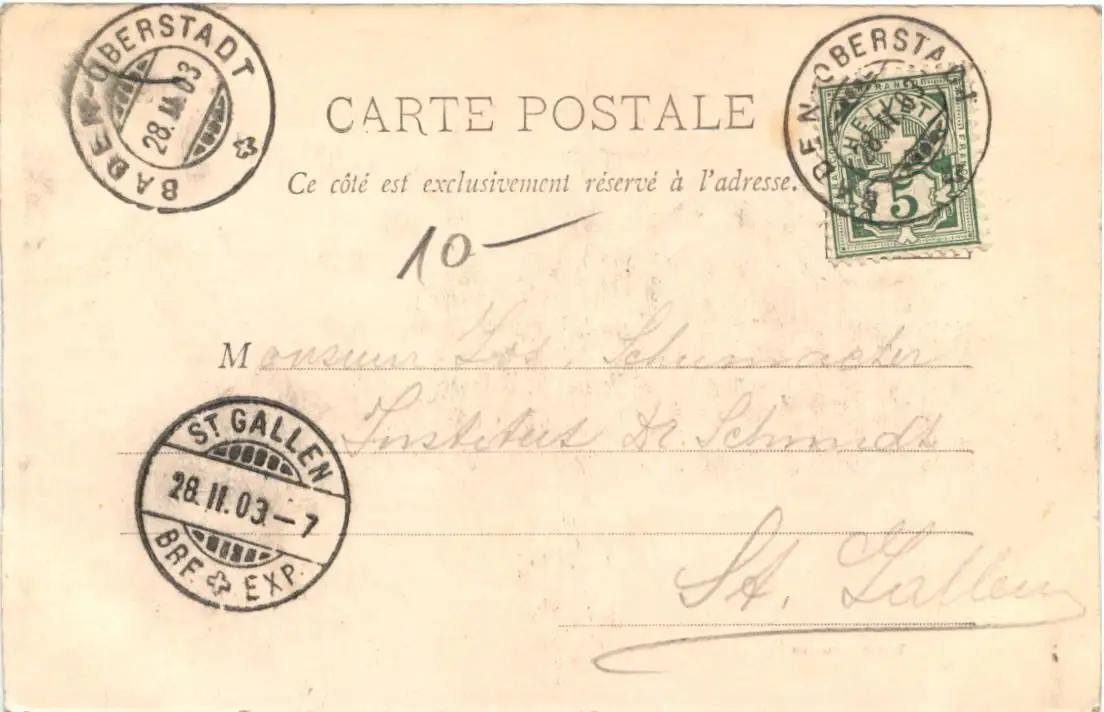 BADEN-OBERSTADT
28.II.03
BADEN-OBERSTADT
28.II
FRANCO
HELVETIA
5
CARTE POSTALE
Ce côté est exclusivement réservé à l'adresse.
10-
Monsieur Jos. Schumacher
Institut Dr. Schmidt
St. Gallen
ST. GALLEN
28.II.03.-7
BRF. EXP.